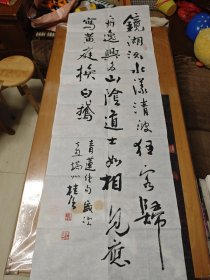 鏡湖流水漾清波狂客歸
舟逸興多山陰道士如相見應
寫黃庭換白鵝
青蓮詩句歲次